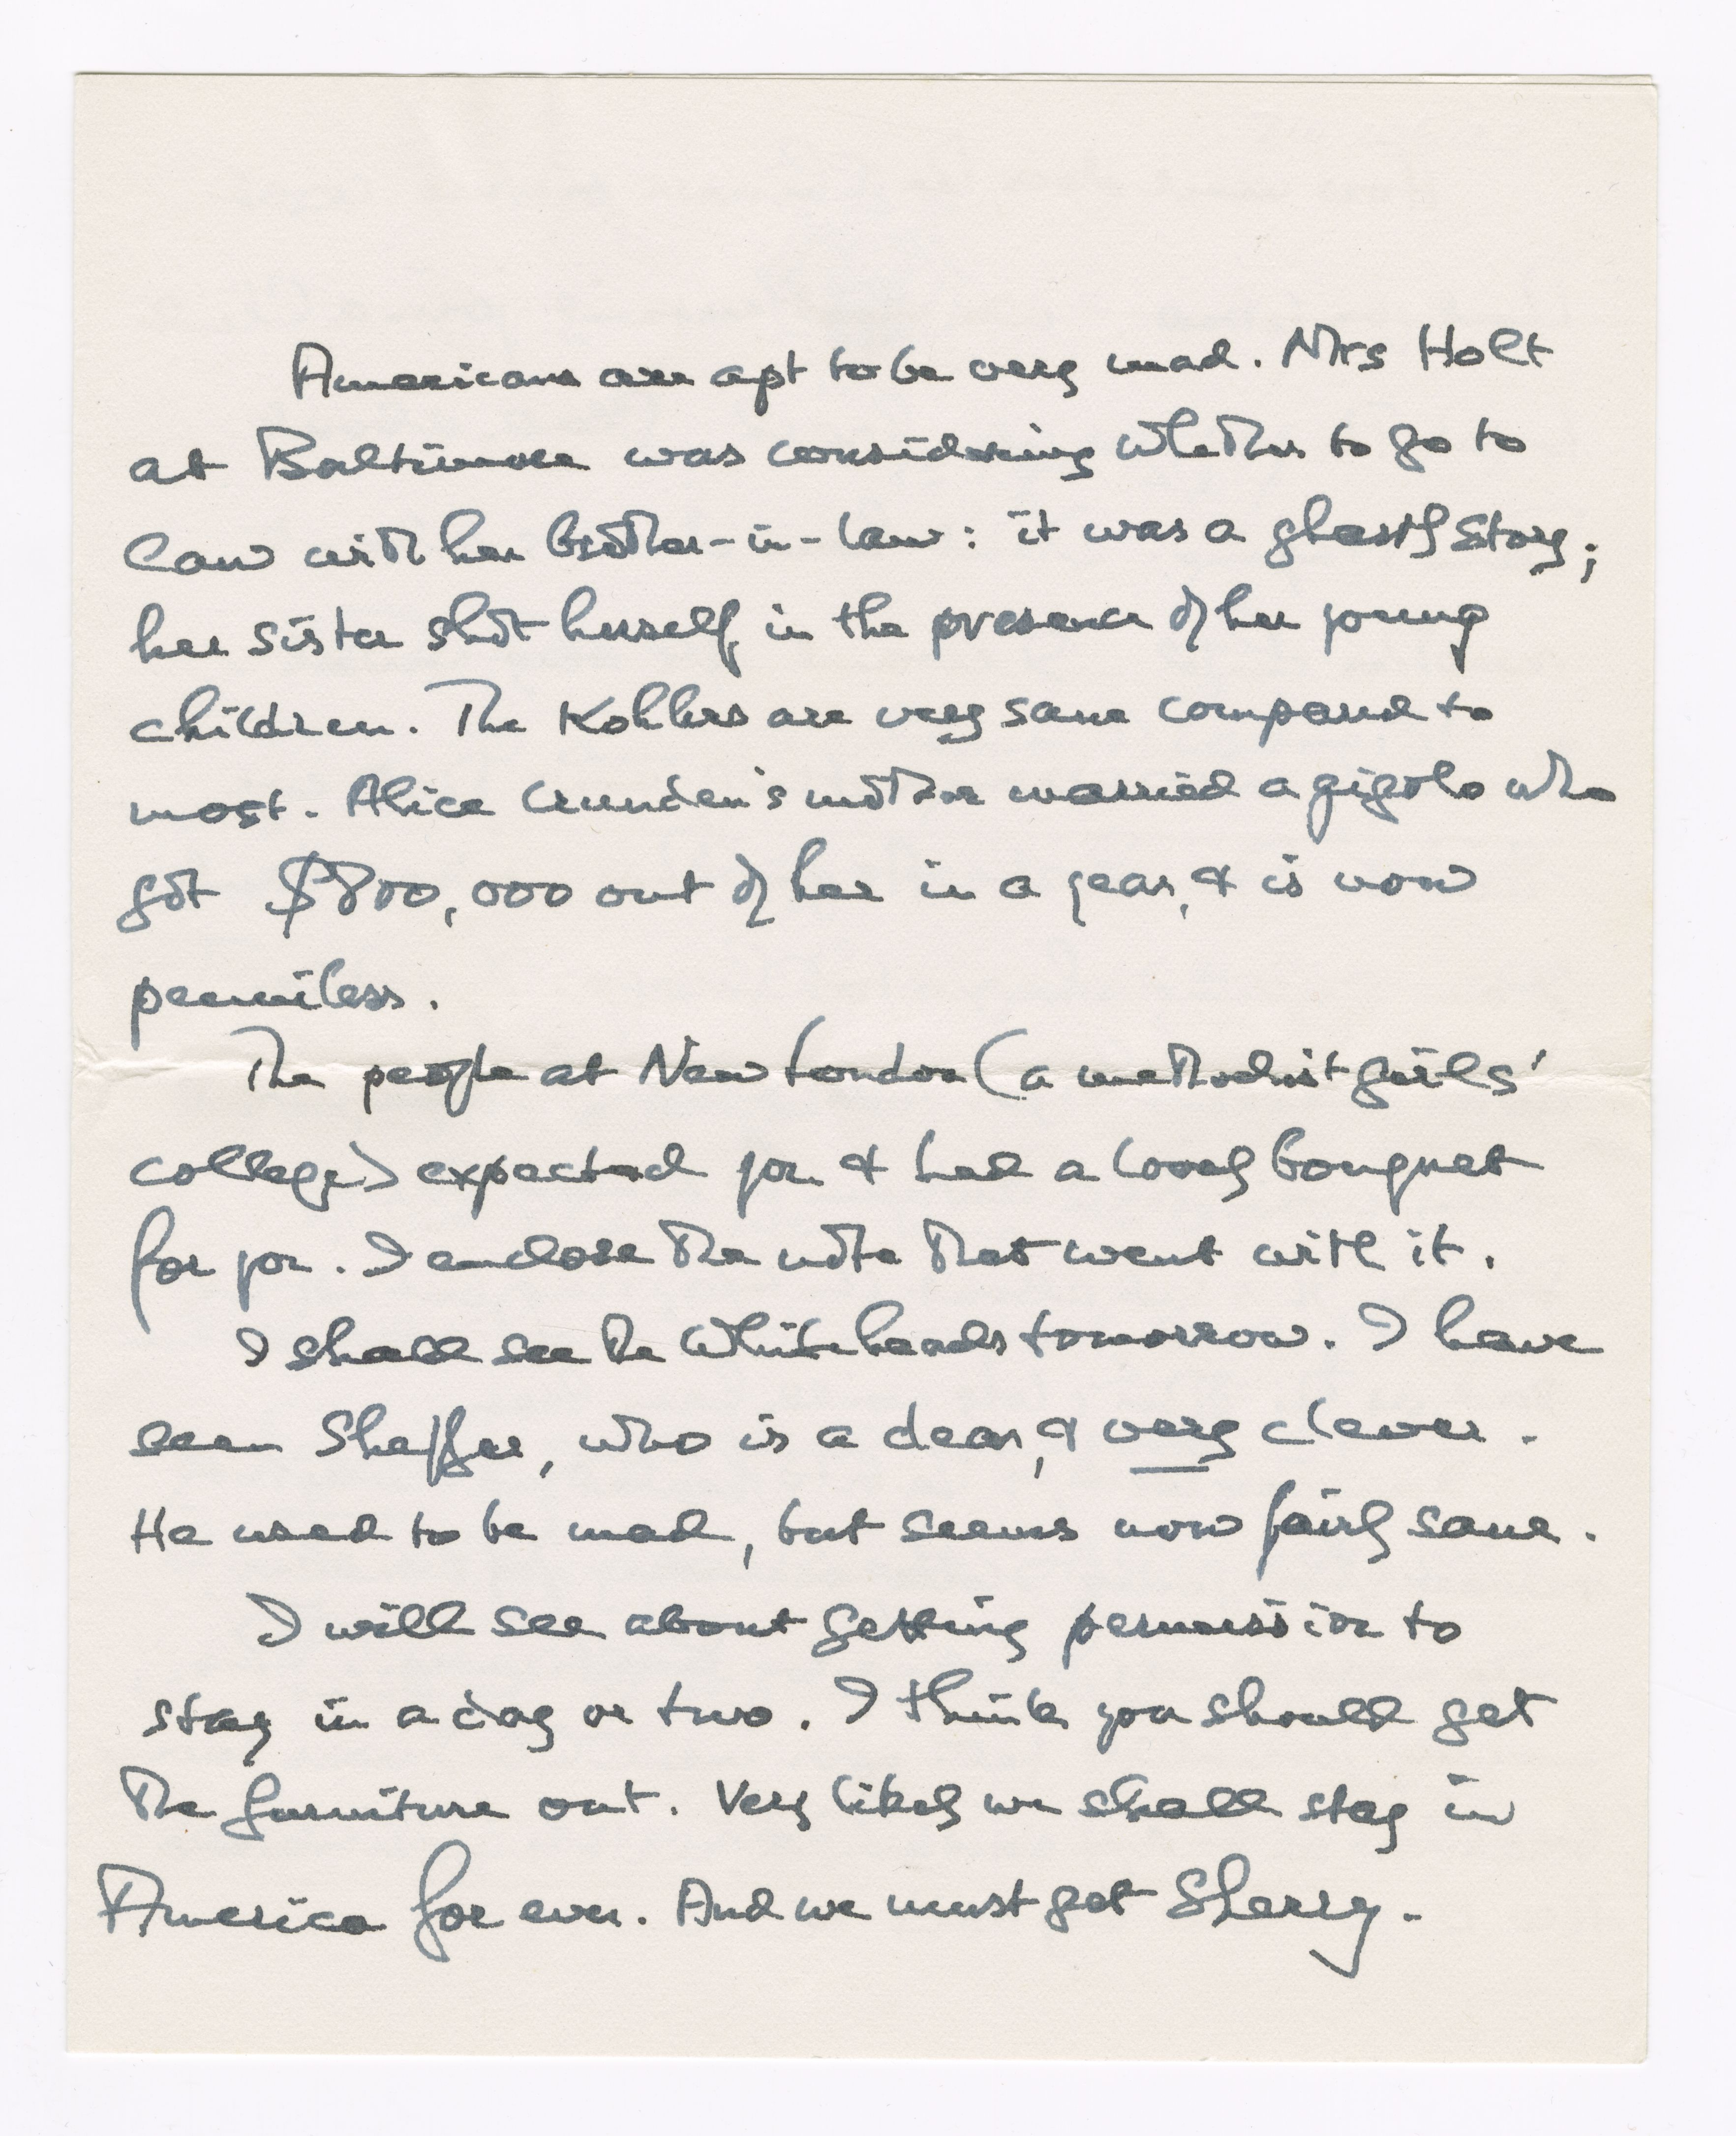 Americans are apt to be very mad. Mrs Holt
at Baltimore was considering whether to go to
law with her brother-in-law: it was a ghastly story;
her sister shot herself in the presence of her young
children. The Kohlers are very sane compared to
most. Alice Crunden's mother married a gigolo who
got $800,000 out of her in a year, & is now
penniless.
The people at New London (a methodist girls'
college) expected you & had a lovely bouquet
for you. I enclose the note that went with it.
I shall see the Whiteheads tomorrow. I have
seen Sheffer, who is a dear, & very clever.
He used to be mad, but seems now fairly sane.
I will see about getting permission to
stay in a day or two. I think you should get
the furniture out. Very likely we shall stay in
America for ever. And we must get Sherry.